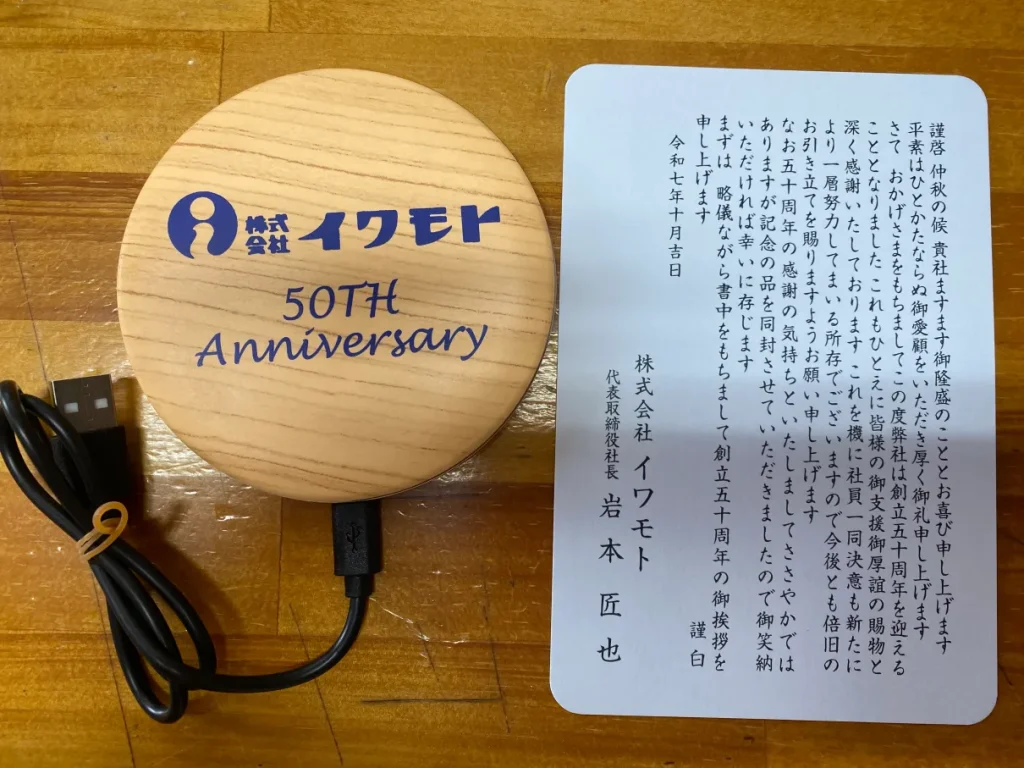 株式
会社
イワモト
50TH
Anniversary
謹啓 仲秋の候 貴社ますます御隆盛のこととお喜び申し上げます
平素はひとかたならぬ御愛顧をいただき厚く御礼申し上げます
さて おかげさまをもちましてこの度弊社は創立五十周年を迎える
こととなりました これもひとえに皆様の御支援御厚誼の賜物と
深く感謝いたしております これを機に社員一同決意も新たに
より一層努力してまいる所存でございますので今後とも倍旧の
お引き立てを賜りますようお願い申し上げます
なお五十周年の感謝の気持ちといたしましてささやかでは
ありますが記念の品を同封させていただきましたので御笑納
いただければ幸いに存じます
まずは 略儀ながら書中をもちまして創立五十周年の御挨拶を
申し上げます
謹白
令和七年十月吉日
株式会社 イワモト
代表取締役社長 岩本匠也